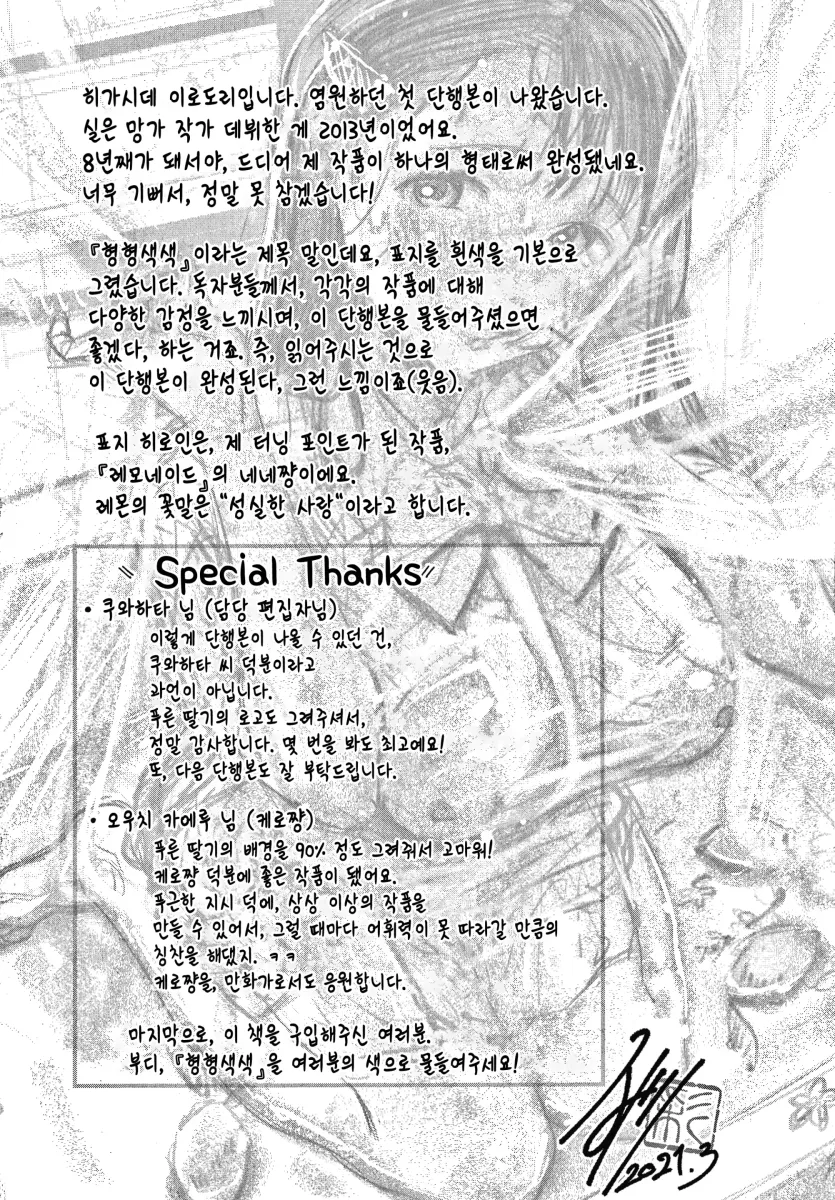 히가시데 이로도리입니다. 염원하던 첫 단행본이 나왔습니다.
실은 망가 작가 데뷔한 게 2013년이었어요.
8년째가 돼서야, 드디어 제 작품이 하나의 형태로써 완성됐네요.
너무 기뻐서, 정말 못 참겠습니다!
『형형색색』이라는 제목 말인데요, 표지를 흰색을 기본으로
그렸습니다. 독자분들께서, 각각의 작품에 대해
다양한 감정을 느끼시며, 이 단행본을 물들어주셨으면
좋겠다, 하는 거죠. 즉, 읽어주시는 것으로
이 단행본이 완성된다, 그런 느낌이죠(웃음).
표지 히로인은, 제 터닝 포인트가 된 작품,
『레모네이드』의 네네쨩이에요.
레몬의 꽃말은 "성실한 사랑"이라고 합니다.
Special Thanks
• 쿠와하타 님 (담당 편집자님)
이렇게 단행본이 나올 수 있던 건,
쿠와하타 씨 덕분이라고
과언이 아닙니다.
푸른 딸기의 로고도 그려주셔서,
정말 감사합니다. 몇 번을 봐도 최고예요!
또, 다음 단행본도 잘 부탁드립니다.
• 오우치 카에루 님 (케로쨩)
푸른 딸기의 배경을 90% 정도 그려줘서 고마워!
케로쨩 덕분에 좋은 작품이 됐어요.
푸근한 지시 덕에, 상상 이상의 작품을
만들 수 있어서, 그럴 때마다 어휘력이 못 따라갈 만큼의
칭찬을 해댔지. ㅋㅋ
케로쨩을, 만화가로서도 응원합니다.
마지막으로, 이 책을 구입해주신 여러분.
부디, 『형형색색』을 여러분의 색으로 물들여주세요!
2021.3